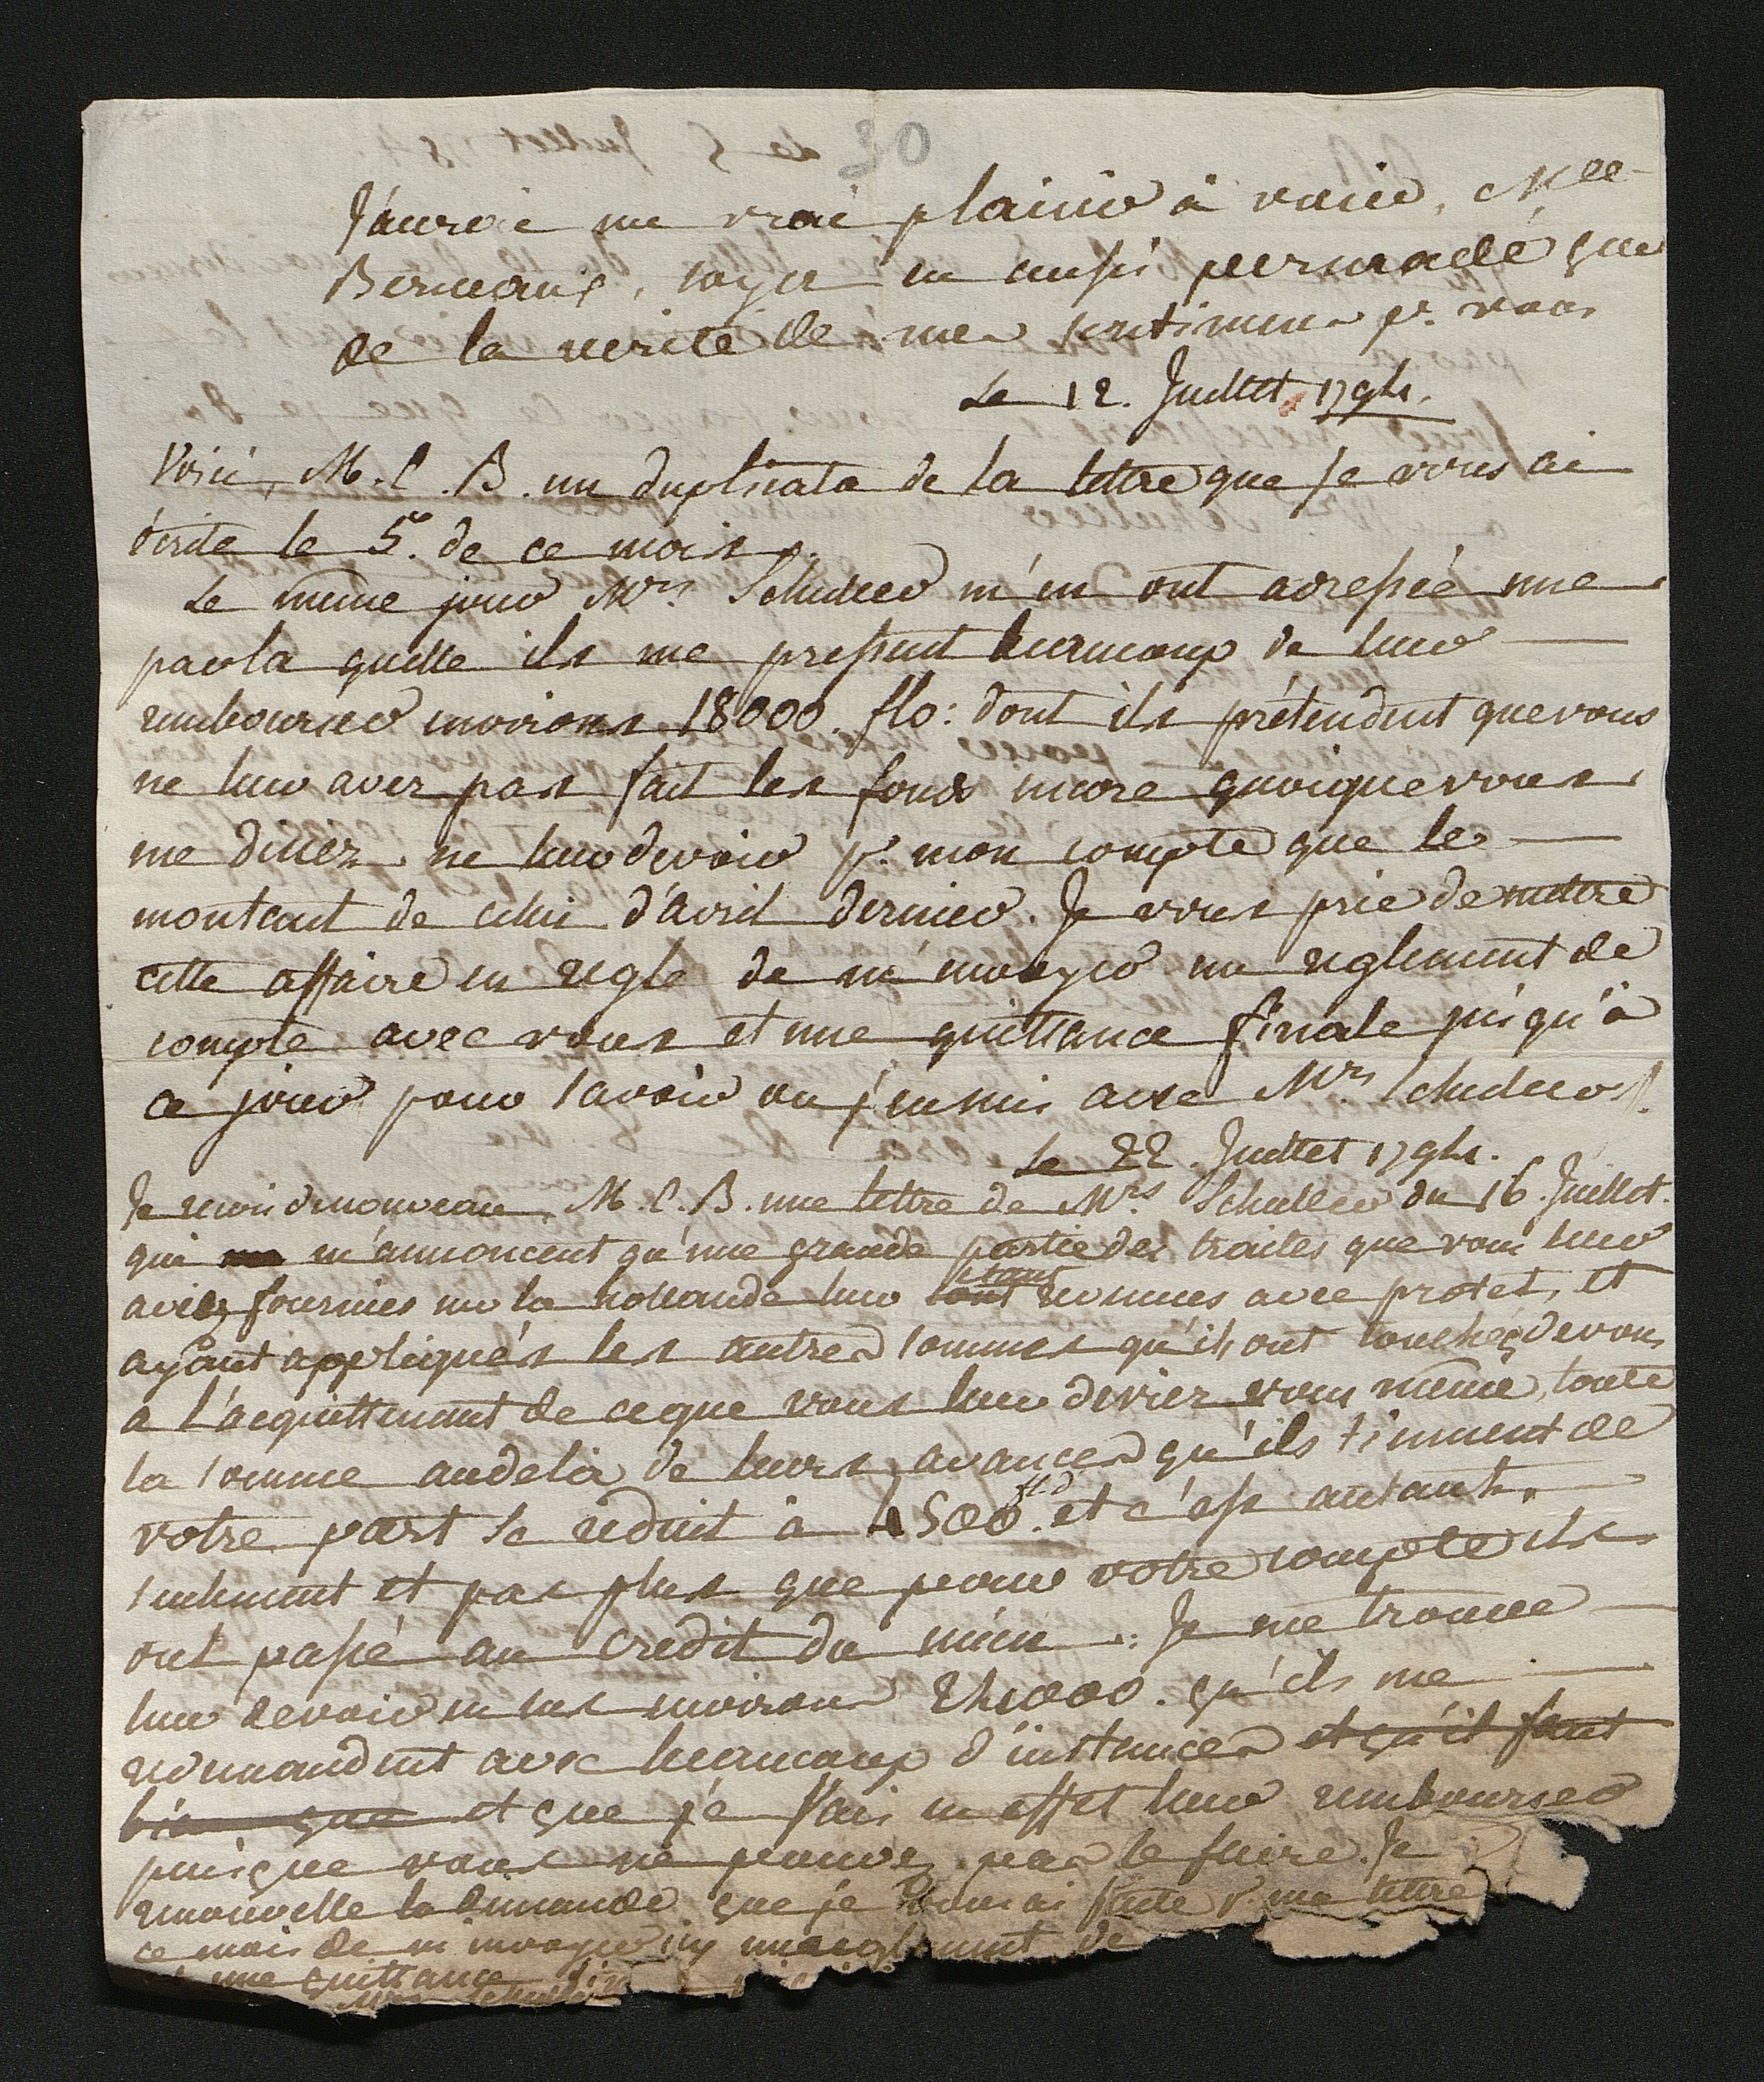 J'aurois un vrai plaisir à voir, Mlle
Bernard, soyez en aussi persuadé que
de la verité de mes sentimens pr. vous
Le 12. Juillet 1794.
Voici, M. C. B. un duplicata de la lettre que je vous ai
écrite le 5. de ce mois.
Le même jour Mrs. Schuller m'en ont adressée une
par la quelle ils me pressent beaucoup de leur
rembourser environs 18000. flo: dont ils prétendent que vous
ne leur avez pas fait les fonds encore quoique vous
me disiez ne leur devoir pr. mon compte que le
montant de celui d'avril dernier. Je vous prie de mettre
cette affaire en regle de m'envoyer un reglement de
compte avec vous et une quittance finale jusqu'à
ce jour pour savoir ou j'en suis avec Mrs. Schuller.
Le 22. Juillet 1794.
Je reçois de nouveau, M. C. B. une lettre de Mrs. Schuller du 16. Juillet.
qui m'annoncent qu'une grande partie des traites que vous leur
aviez fournies sur la hollande leur étant revenues avec protet, et
ayant appliqués les autres sommes qu'ils ont touchés de vous
a l'acquittement de ce que vous leur deviez vous même, toute
la somme au dela de leurs avances qu'ils tiennent de
votre part se reduit à 4500. fld et c'est autant
seulement et pas plus que pour votre compte ils
ont passé au credit du mien. Je me trouve
leur devoir en sus environ 24000. qu'ils me
redemandent avec beaucoup d'instances et qu'il faut
bien que et que je vais en effet leur rembourser
puisque vous ne pouvez pas le faire. Je
renouvelle la demande que je vous ai faite pr. ma lettre
ce mois de m'envoyer un reglement de
une quittance
Mrs Schuller